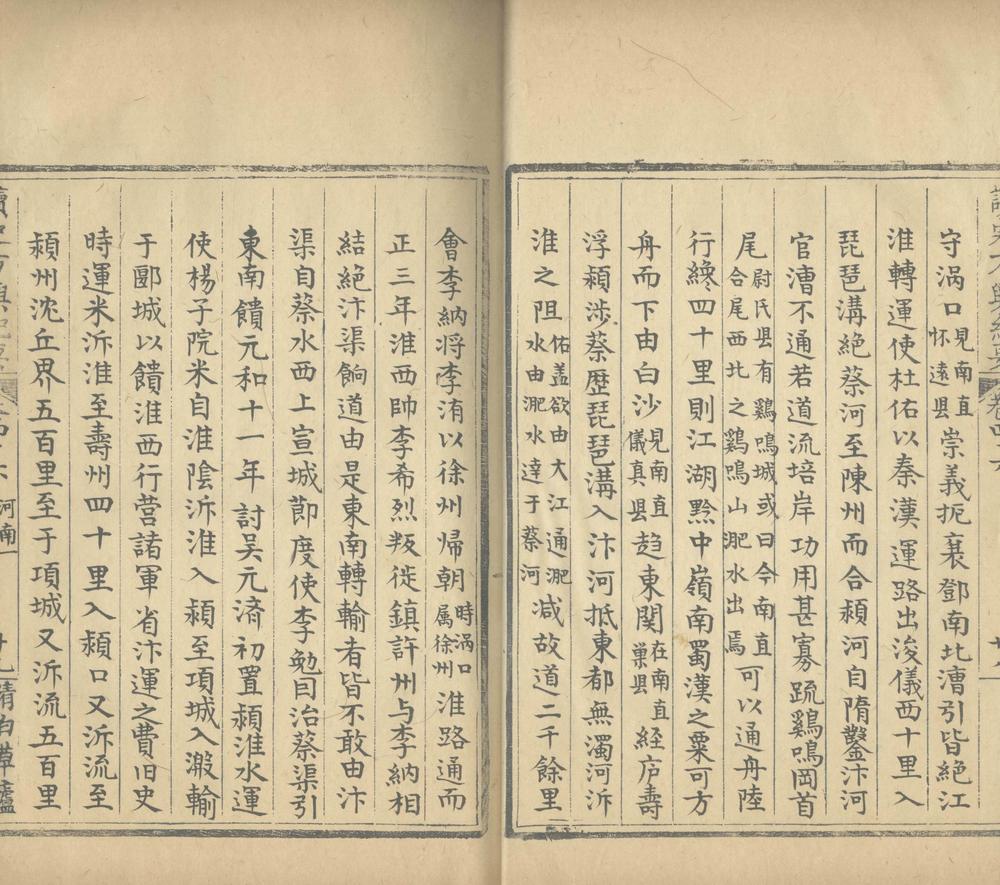 守涡口見南直懷遠县崇義扼襄鄧南北漕引皆絶江
淮轉運使杜佑以秦漢運路出浚儀西十里入
琵琶溝絶蔡河至陳州而合潁河自隋鑿汴河
官漕不通若道流培岸功用甚寡疏鷄鳴岡首
尾尉氏县有鷄鳴城或曰今南直合尾西北之鷄鳴山淝水出焉可以通舟陸
行纔四十里則江湖黔中嶺南蜀漢之粟可方
舟而下由白沙見南直儀真县趋東関在南直巢县経庐壽
浮潁涉蔡歴琵琶溝入汴河抵東都無濁河泝
淮之阻佑盖欲由大江通淝水由淝水達于蔡河减故道二千餘里
會李納将李洧以徐州帰朝時涡口属徐州淮路通而
正三年淮西帥李希烈叛徙鎮許州与李納相
結絶汴渠餉道由是東南轉輸者皆不敢由汴
渠自蔡水西上宣城節度使李勉囙治蔡渠引
東南饋元和十一年討吴元済初置潁淮水運
使楊子院米自淮陰泝淮入潁至項城入溵輸
于郾城以饋淮西行营諸軍省汴運之費旧史
時運米泝淮至壽州四十里入潁口又泝流至
潁州沈丘界五百里至于項城又泝流五百里
河南一